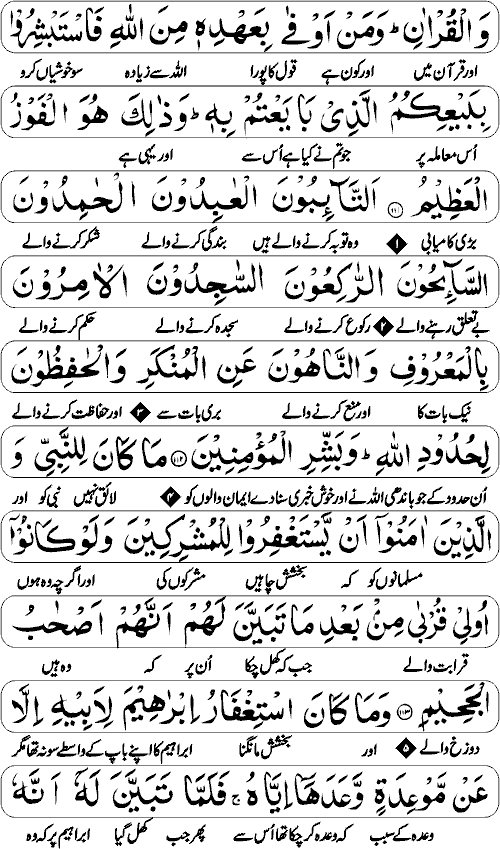 وَالْقُرْاٰنِ ؕ وَمَنْ اَوْفٰی بِعَهْدِهٖ مِنَ اللّٰهِ فَاسْتَبْشِرُوْا
اور قرآن میں اور کون ہے قول کا پورا اللہ سے زیادہ سو خوشیاں کرو
بِبَیْعِكُمُ الَّذِیْ بَایَعْتُمْ بِهٖ ؕ وَذٰلِكَ هُوَ الْفَوْزُ
اُس معاملہ پر جو تم نے کیا ہے اُس سے اور یہی ہے
الْعَظِیْمُ ۱۱۱ اَلتَّآىِٕبُوْنَ الْعٰبِدُوْنَ الْحٰمِدُوْنَ
بڑی کامیابی ۱ وہ توبہ کرنے والے ہیں بندگی کرنے والے شکر کرنے والے
السَّآىِٕحُوْنَ الرّٰكِعُوْنَ السّٰجِدُوْنَ الْاٰمِرُوْنَ
بے تعلق رہنے والے ۲ رکوع کرنے والے سجدہ کرنے والے حکم کرنے والے
بِالْمَعْرُوْفِ وَالنَّاهُوْنَ عَنِ الْمُنْكَرِ وَالْحٰفِظُوْنَ
نیک بات کا اور منع کرنے والے بری بات سے ۳ اور حفاظت کرنے والے
لِحُدُوْدِ اللّٰهِ ؕ وَبَشِّرِ الْمُؤْمِنِیْنَ ۱۱۲ مَا كَانَ لِلنَّبِیِّ وَ
اُن حدود کے جو باندھی اللہ نے اور خوش خبری سنا دے ایمان والوں کو ۴ لائق نہیں نبی کو اور
الَّذِیْنَ اٰمَنُوْۤا اَنْ یَّسْتَغْفِرُوْا لِلْمُشْرِكِیْنَ وَلَوْ كَانُوْۤا
مسلمانوں کو کہ بخشش چاہیں مشرکوں کی اور اگرچہ وہ ہوں
اُولِیْ قُرْبٰی مِنْۢ بَعْدِ مَا تَبَیَّنَ لَهُمْ اَنَّهُمْ اَصْحٰبُ
قرابت والے جب کہ کھل چکا اُن پر کہ وہ ہیں
الْجَحِیْمِ ۱۱۳ وَمَا كَانَ اسْتِغْفَارُ اِبْرٰهِیْمَ لِاَبِیْهِ اِلَّا
دوزخ والے ۵ اور بخشش مانگنا ابراہیم کا اپنے باپ کے واسطے سو نہ تھا مگر
عَنْ مَّوْعِدَةٍ وَّعَدَهَاۤ اِیَّاهُ ۚ فَلَمَّا تَبَیَّنَ لَهٗۤ اَنَّهٗ
وعدہ کے سبب کہ وعدہ کر چکا تھا اُس سے پھر جب کھل گیا ابراہیم پر کہ وہ